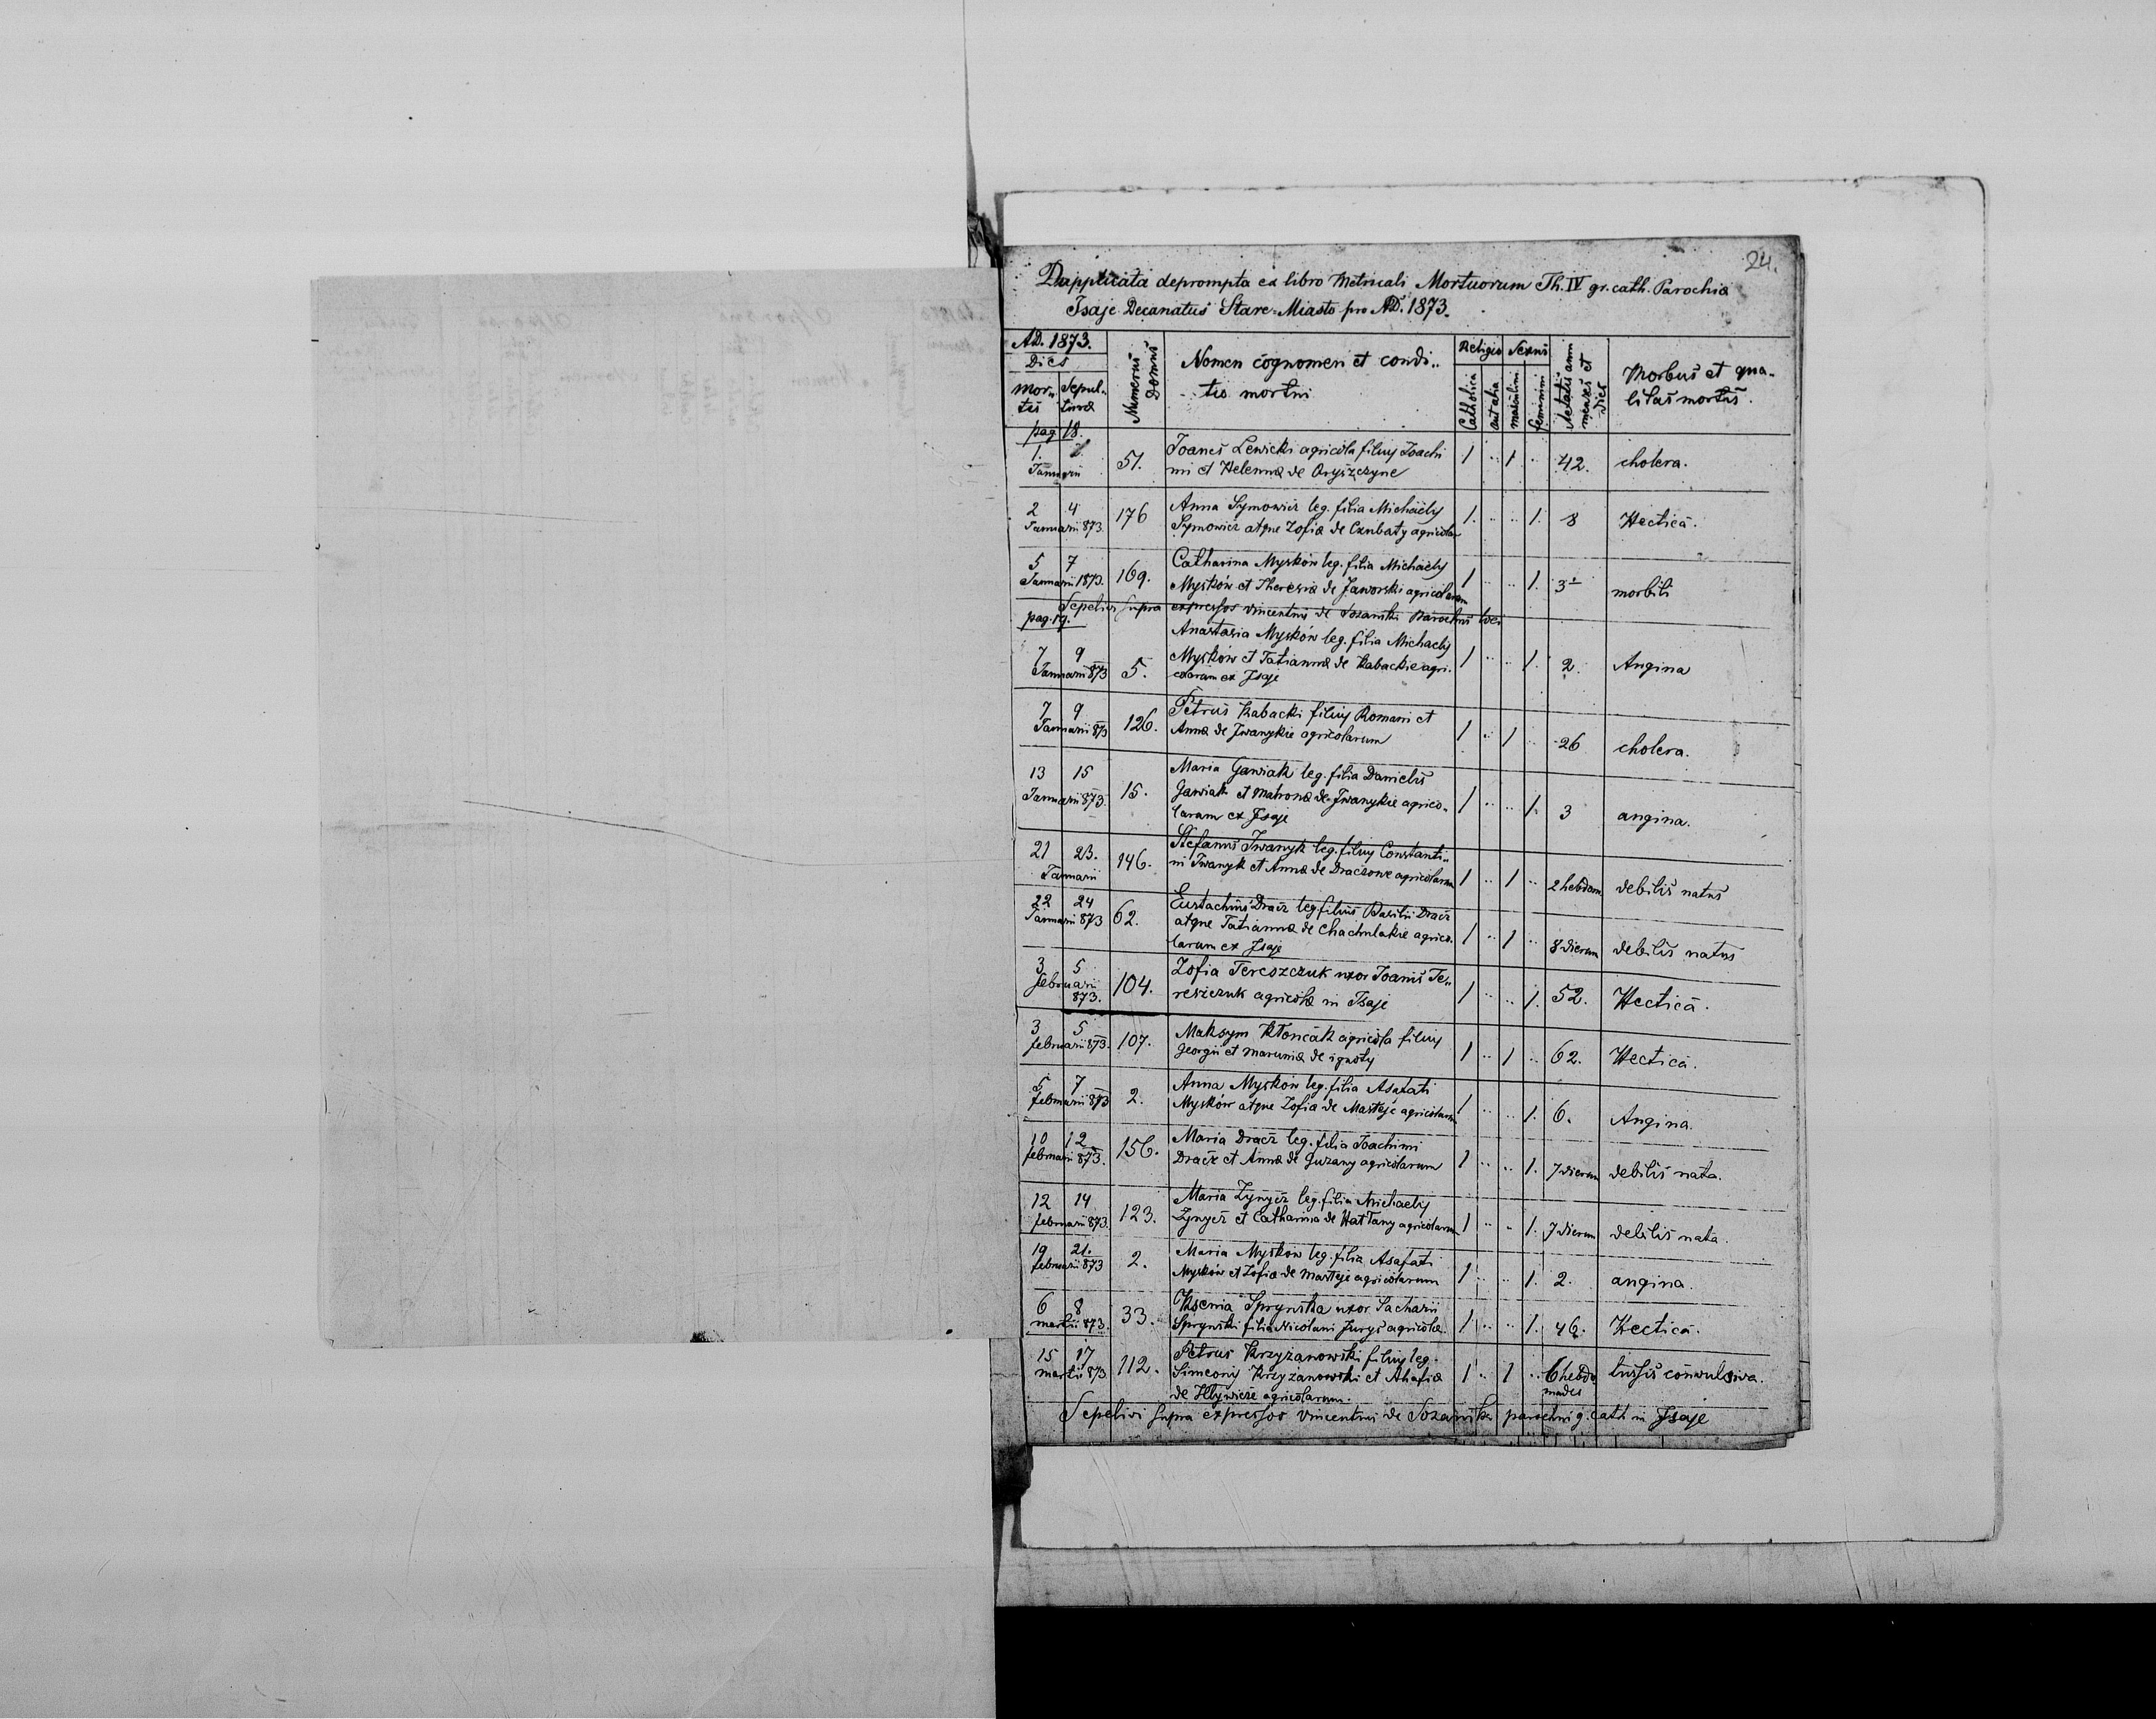 24.
Dupplicata deprompta ex libro Metricali Mortuorum Th. IV gr. cath. Parochia
Isaje Decanatus Stare-Miasto pro AD. 1873.
AD. 1873.
Dies
mor.. tis
Sepul.. turæ
Numerus Domus
Nomen cognomen et condi.. tio mortui
Religio
Catholica
aut alia
Sexus
masculini
feminini
Aetatis anni menses et dies
Morbus et qua- litas mortis.
pag. 18.
1. Januarii 51. Joanes Lewicki agricola filius Joachi
mi et Helennæ de 1 .. 1 .. 42. cholera.
2 4 Januarii 873. 176 Anna Symowicz leg. filia Michaelis
Symowicz atque Zofiæ de Czubaty agricolar 1. .. .. 1. 8 Hectica.
5 7 Januarii 1873. 169. Catharina Myskow leg. filia Michaelis
Mysków et Theresiæ de Jaworski agricolarum 1 .. .. 1. 3 morbili
Sepelivi supra expressos Vincentius de Sozański Parochus loci
pag. 19.
7 9 Januarii 873 5. Anastasia Mysków leg. filia Michaelis
Mysków et Tatiannæ de Kabackie agri-
colarum ex Isaje 1 .. .. 1. 2. Angina
7 9 Januarii 873 126. Petrus Kabacki filius Romani et
Annæ de Iwanykie agricolarum 1 .. 1 .. 26 cholera.
13 15 Januarii 873. 15. Maria Gawiak leg. filia Danielis
Gawiak et Mahonæ de Iwanykie agrico-
larum ex Isaje 1 .. .. 1. 3 angina.
21 23. Januarii 146. Stefanus Iwanyk leg. filius Constanti..
ni Iwanyk et Annæ de Draczowe agricolarum 1 .. 1 .. 2 hebdom debilis natus
22 24 Januarii 873 62. Eustachius Dracz leg filius Basilii Dracz
atque Tatiannæ de Chachulakie agrico-
larum ex Isaje 1 .. 1 .. 8 dierum debilis natus
3 5 februarii 873. 104. Zofia Tereszczuk uxor Joanis Te..
reszczuk agricolæ in Isaje 1 .. .. 1. 52. Hectica.
3 5 februarii 873. 107. Maksym Kłoncak agricola filius
Georgii et Maruniæ de ignotis 1 .. 1 .. 62. Hectica.
5 7 februarii 873 2. Anna Myskow leg. filia Asafati
Mysków atque Zofiæ de Masteje agricolarum 1 .. .. 1. 6. Angina.
10 12 februarii 873. 156. Maria Dracz leg. filia Joachimi
Dracz et Annæ de Guzany agricolarum 1 .. .. 1. 7 dierum debilis nata.
12 14 februarii 873. 123. Maria Zynycz leg. filia Michaelis
Zynycz et Catharina de Hattany agricolarum 1 .. .. 1. 7 dierum debilis nata.
19 21. februarii 873 2. Maria Myskow leg. filia Asafati
Mysków et Zofiæ de Masteje agricolarum 1 .. .. 1. 2. angina.
6 8 martii 873. 33. Ksenia Sprynska uxor Sacharii
Sprynski filia Nicolani Jurys agricolæ. 1 .. .. 1. 46. Hectica.
15 17 martii 873 112. Petrus Krzyżanowski filius leg.
Simeonis Krzyżanowski et Ahafiæ
de Hlywicze agricolarum. 1 .. 1 .. 6 hebdo mades tussis convulsiva.
Sepelivi supra expressos Vincentius de Sozański parochus g. cath. in Isaje